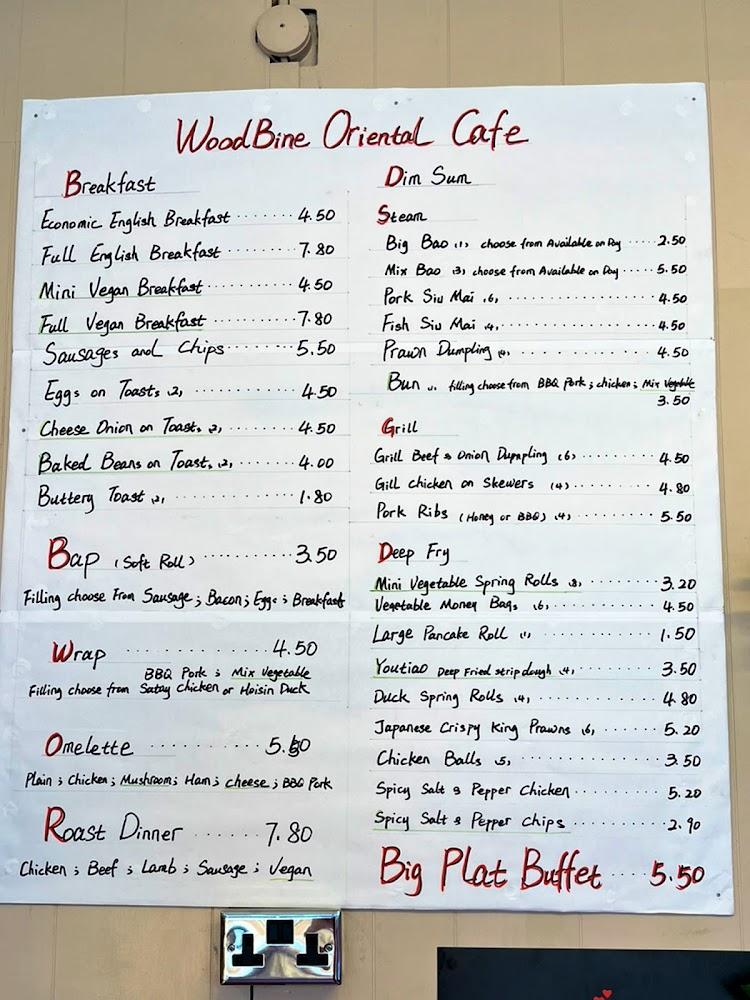 WoodBine Oriental Cafe
Breakfast
Economic English Breakfast ········ 4.50
Full English Breakfast ········ 7.80
Mini Vegan Breakfast 4.50
Full Vegan Breakfast ········ 7.80
Sausages and Chips ······· 5.50
Eggs on Toasts (2), ············ 4.50
Cheese Onion on Toast, (2), ········ 4.50
Baked Beans on Toast, (2), ········ 4.00
Buttery Toast (2), ·············· 1.80
Bap (Soft Roll) ·········· 3.50
Filling choose From Sausage ; Bacon ; Eggs ; Breakfast
Wrap ············ 4.50
BBQ Pork ; Mix Vegetable
Filling choose from Satay Chicken or Hoisin Duck
Omelette ·········· 5.50
Plain ; Chicken ; Mushroom ; Ham ; cheese ; BBQ Pork
Roast Dinner ······· 7.80
Chicken ; Beef ; Lamb ; Sausage ; Vegan
Dim Sum
Steam
Big Bao (1) choose from Available on Day ····· 2.50
Mix Bao (3) choose from Available on Day ····· 5.50
Pork Siu Mai (6), ················ 4.50
Fish Siu Mai (4), ················ 4.50
Prawn Dumpling (4) ·········· 4.50
Bun (1), filling choose from BBQ Pork ; chicken ; Mix Vegetable
3.50
Grill
Grill Beef & Onion Dumpling (6) ········ 4.50
Gill chicken on Skewers (4) ········ 4.80
Pork Ribs (Honey or BBQ) (4) ········ 5.50
Deep Fry
Mini Vegetable Spring Rolls (8) ········ 3.20
Vegetable Money Bags (6) ············ 4.50
Large Pancake Roll (1) ············ 1.50
Youtiao Deep Fried strip dough (4) ········ 3.50
Duck Spring Rolls (4) ············ 4.80
Japanese Crispy King Prawns (6), ······ 5.20
Chicken Balls (5), ············ 3.50
Spicy Salt & Pepper Chicken ········ 5.20
Spicy Salt & Pepper Chips ········ 2.90
Big Plat Buffet ···· 5.50